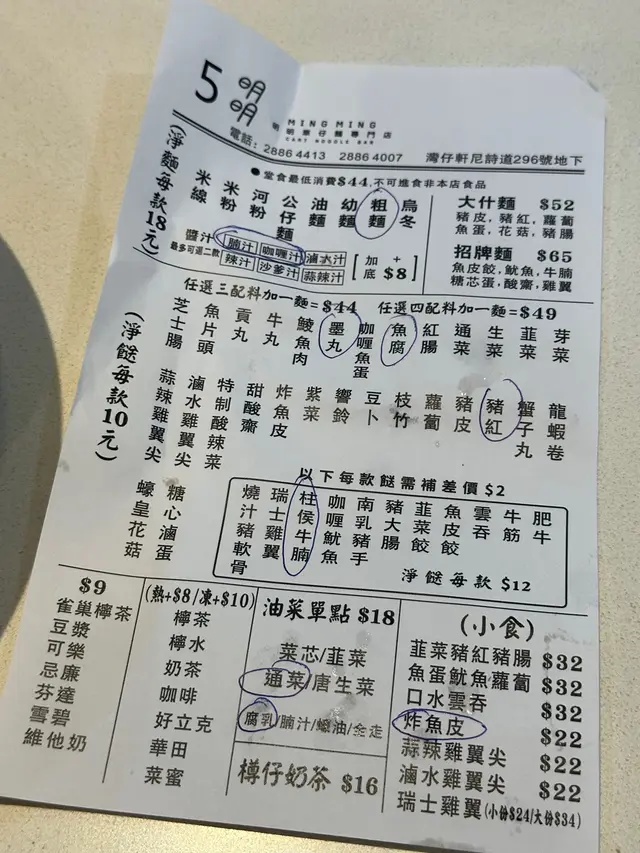 5 明明
MING MING
明明車仔麵專門店
CART NOODLE BAR
電話: 2886 4413 2886 4007 灣仔軒尼詩道296號地下
●堂食最低消費$44,不可進食非本店食品
(淨麵每款18元)
米線 米粉 河粉 公仔麵 油麵 幼麵 粗麵 烏冬
醬汁
最多可選二款
腩汁 咖喱汁 滷水汁
辣汁 沙爹汁 蒜辣汁
[加底 + $8]
大什麵 $52
豬皮,豬紅,蘿蔔
魚蛋,花菇,豬腸
招牌麵 $65
魚皮餃,魷魚,牛腩
糖芯蛋,酸齋,雞翼
任選三配料加一麵=$44 任選四配料加一麵=$49
(淨餸每款10元)
芝士腸 魚片頭 貢丸 牛丸 鯪魚肉 墨丸 咖喱魚蛋 魚腐 紅腸 通菜 生菜 韮菜 芽菜
蒜辣雞翼尖 滷水雞翼尖 特制酸辣菜 甜酸齋 炸魚皮 紫菜 響鈴 豆卜 枝竹 蘿蔔 豬皮 豬紅 蟹子丸 龍蝦卷
蠔皇花菇 糖心滷蛋
以下每款餸需補差價 $2
燒汁豬軟骨 瑞士雞翼 柱侯牛腩 咖喱魷魚 南乳豬手 豬大腸 韮菜餃 魚皮餃 雲吞 牛筋 肥牛
淨餸每款 $12
$9
雀巢檸茶
豆漿
可樂
忌廉
芬達
雪碧
維他奶
(熱+$8/凍+$10)
檸茶
檸水
奶茶
咖啡
好立克
華田
菜蜜
油菜單點 $18
菜芯/韮菜
通菜/唐生菜
腐乳/腩汁/蠔油/全走
樽仔奶茶 $16
(小食)
韮菜豬紅豬腸 $32
魚蛋魷魚蘿蔔 $32
口水雲吞 $32
炸魚皮 $22
蒜辣雞翼尖 $22
滷水雞翼尖 $22
瑞士雞翼 (小份$24/大份$34)